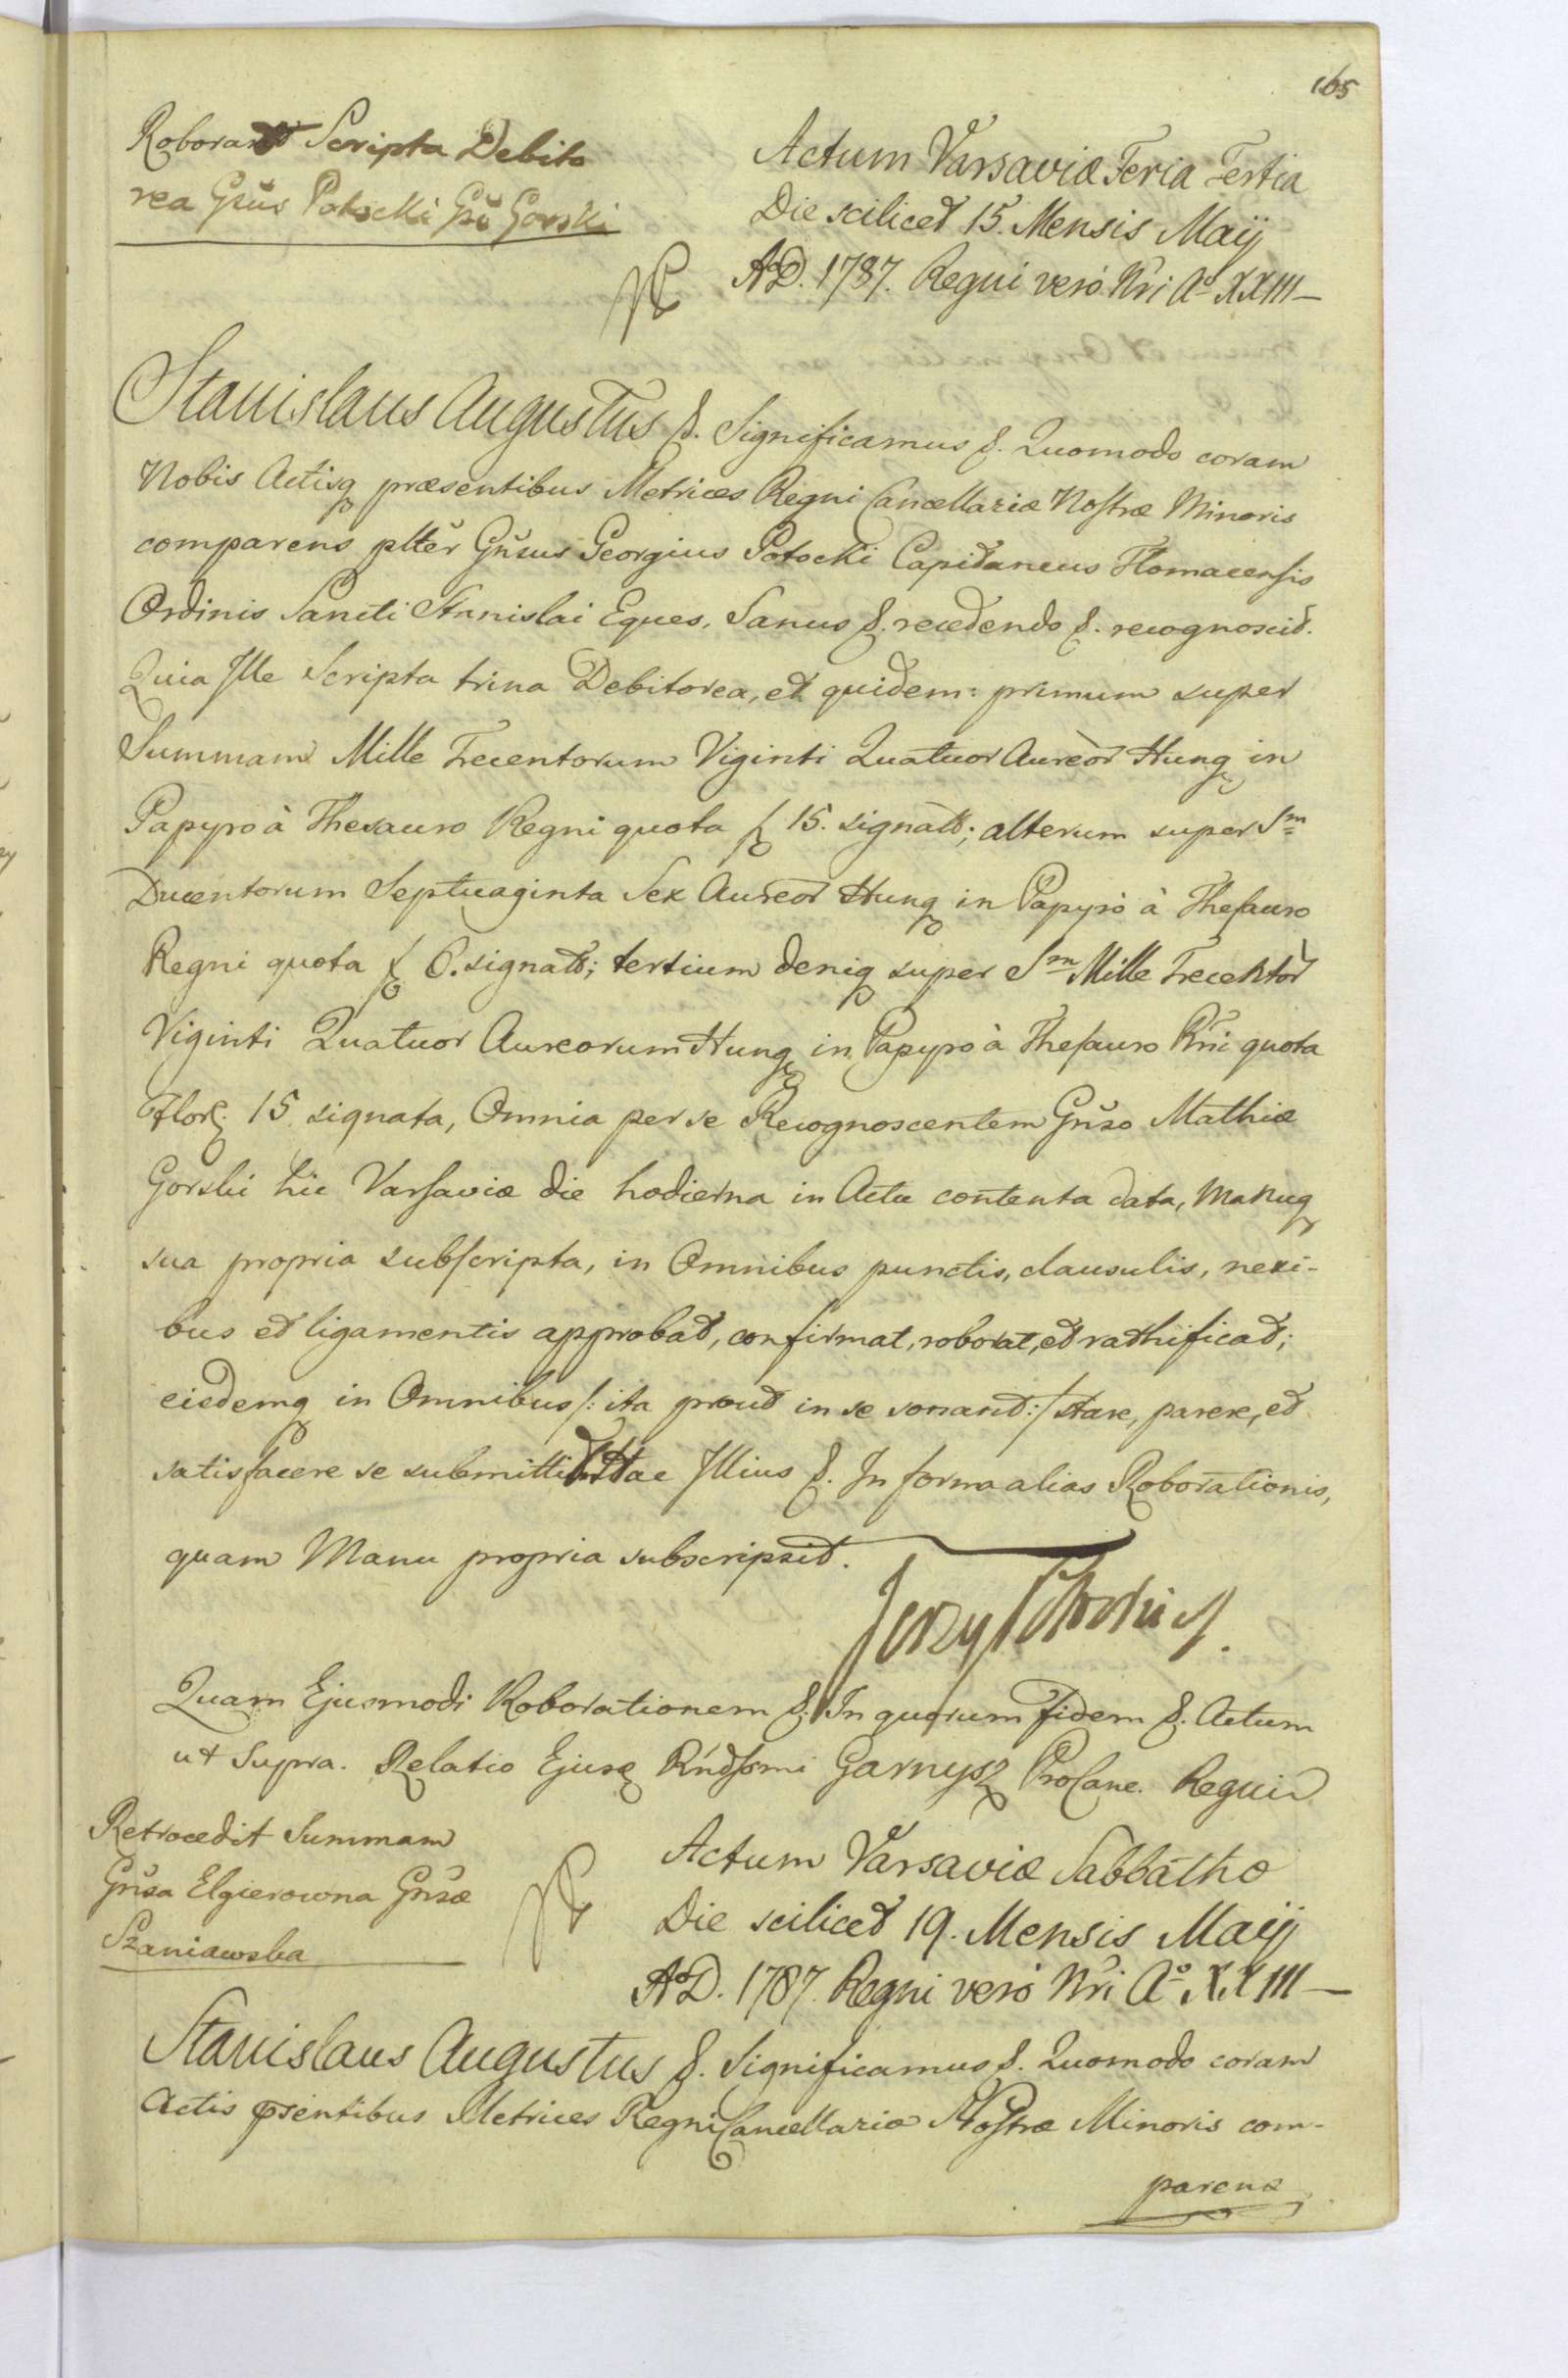 165
Roborat Scripta Debito
rea Gnus Potocki Gno Gorski
Actum Varsaviæ Feria Tertia
Die scilicet 15. Mensis Maij
AD. 1787. Regni vero Nri Ao XXIII
Stanislaus Augustus &. Significamus &. Quomodo coram
Nobis Actisq præsentibus Metrices Regni Cancellariæ Nostræ Minoris
comparens plter Gnsus Georgius Potocki Capitaneus Tlomacensis
Ordinis Sancti Stanislai Eques, Sanus &. recedendo &. recognoscit.
Quia Ille Scripta trina Debitorea, et quidem: primum super
Summam Mille Trecentorum Viginti Quatuor Aureor Hung in
Papyro à Thesauro Regni quota f 15. signato; alterum super Sm
Ducentorum Septuaginta Sex Aureor Hung in Papyro à Thesauro
Regni quota f 6. signato; tertium deniq super Sm Mille Trecentor
Viginti Quatuor Aureorum Hung in Papyro à Thesauro Rni quota
Flor. 15 signata, Omnia per se Recognoscentem Gnso Mathiæ
Gorski hic Varsaviæ die hodierna in Actu contenta data, Manuq
sua propria subscripta, in Omnibus punctis, clausulis, nexi-
bus et ligamentis approbat, confirmat, roborat, et rathificat;
eisdemq in Omnibus /: ita prout in se sonant :/ stare, parere, et
satisfacere se submittit Illius &. In forma alias Roborationis,
quam Manu propria subscripsit.
Jerzy Potocki
Quam Ejusmodi Roborationem &. In quorum fidem &. Actum
ut Supra. Relatio Ejusq Rndssmi Garnysz ProCanc. Regni
Retrocedit Summam
Gnsa Elgierowna Gnsæ
Szaniawska
Actum Varsaviæ Sabbatho
Die scilicet 19. Mensis Maij
AD. 1787. Regni vero Nri Ao XXIII
Stanislaus Augustus &. Significamus &. Quomodo coram
Actis psentibus Metrices Regni Cancellariæ Nostræ Minoris com-
parens